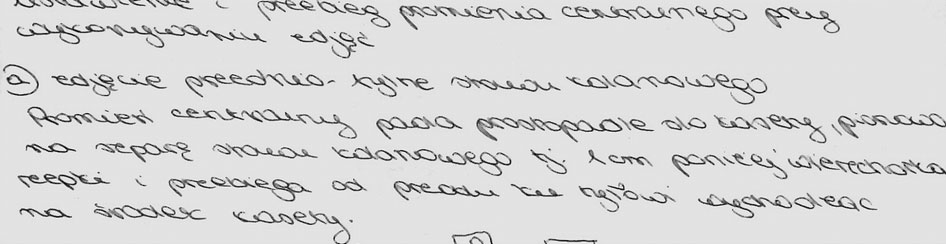 ustawienie i przebieg promienia centralnego przy
wykonywaniu zdjęć
a) zdjęcie przednio-tylne stawu kolanowego
Promień centralny pada prostopadle do kasety, pionowo
na szparę stawu kolanowego tj. 1cm poniżej wierzchołka
rzepki i przebiega od przodu ku tyłowi wychodząc
na środek kasety.